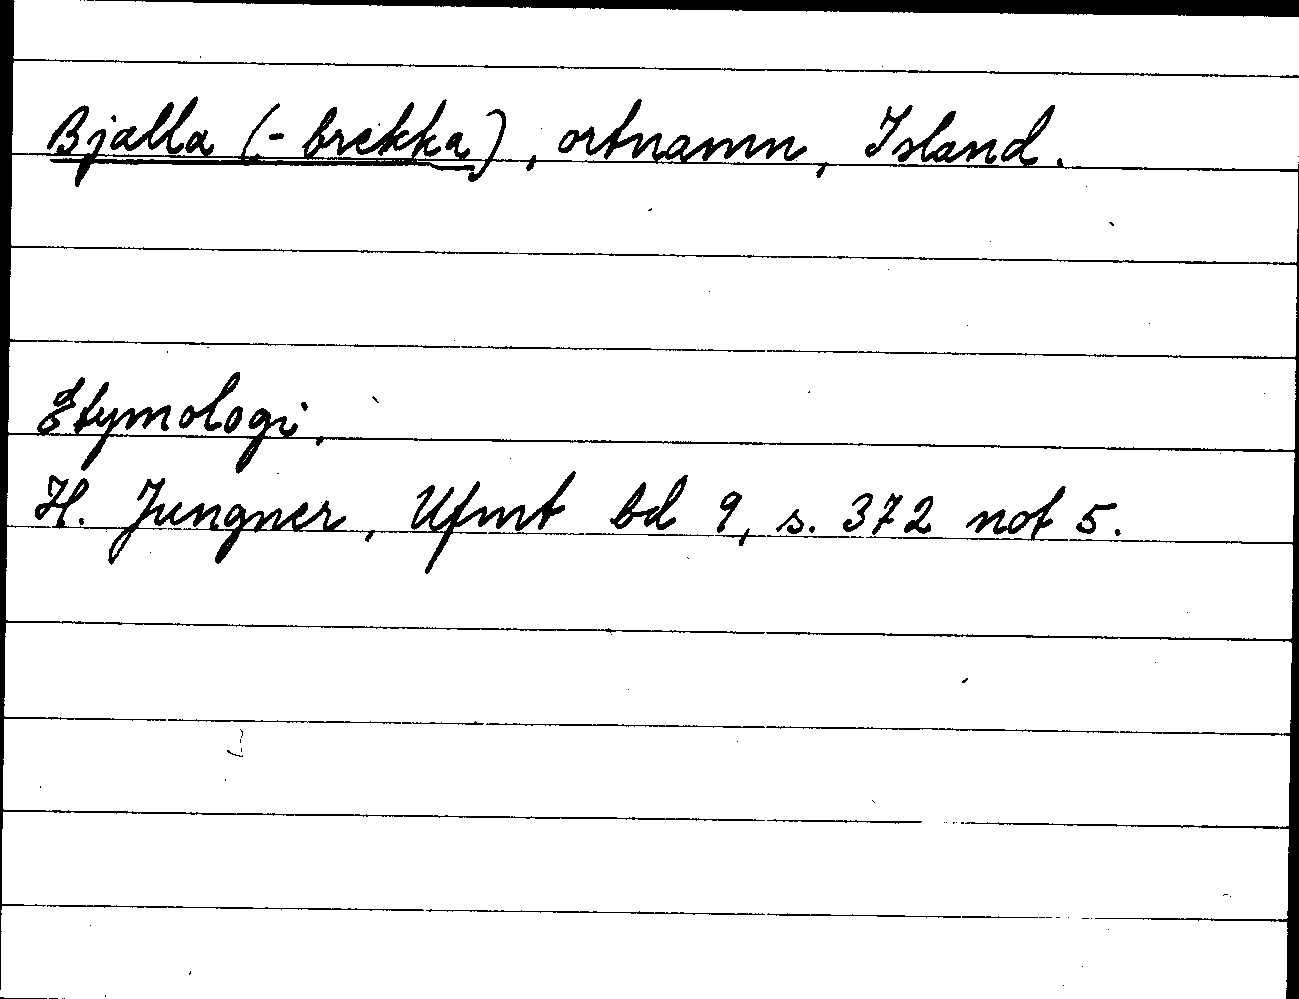 Bjalla (-brekka), ortnamn, Island.
Etymologi.
H. Jungner, Ufmt bd 9, s. 372 not 5.